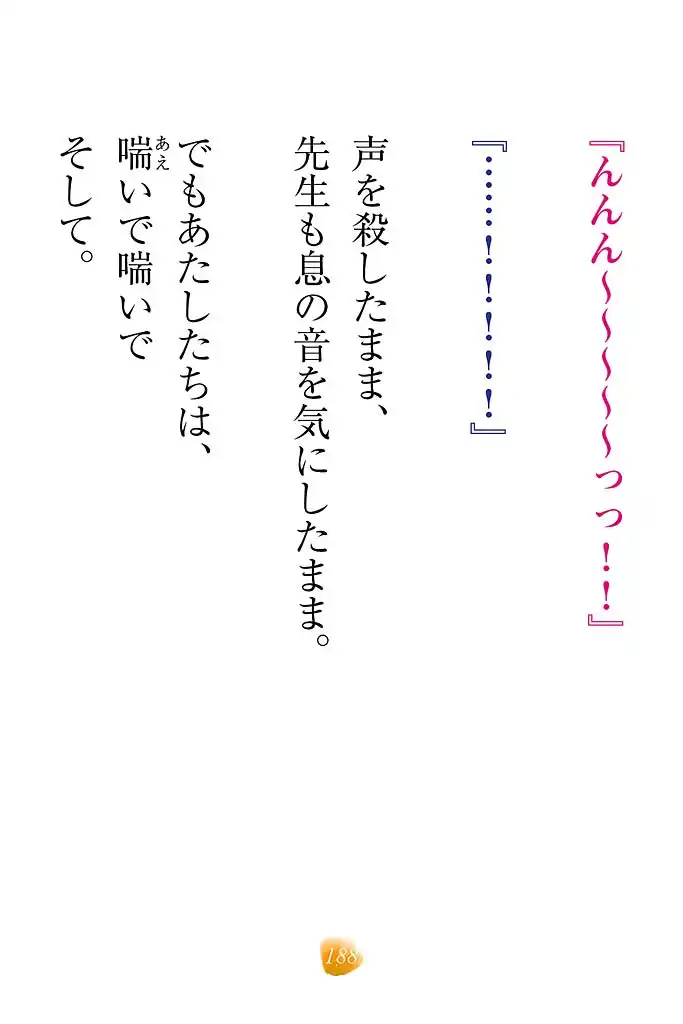 『んんん～～～～～っっ！！』
『……！！！！！』
声を殺したまま、
先生も息の音を気にしたまま。
でもあたしたちは、
喘いで喘いで
そして。
188